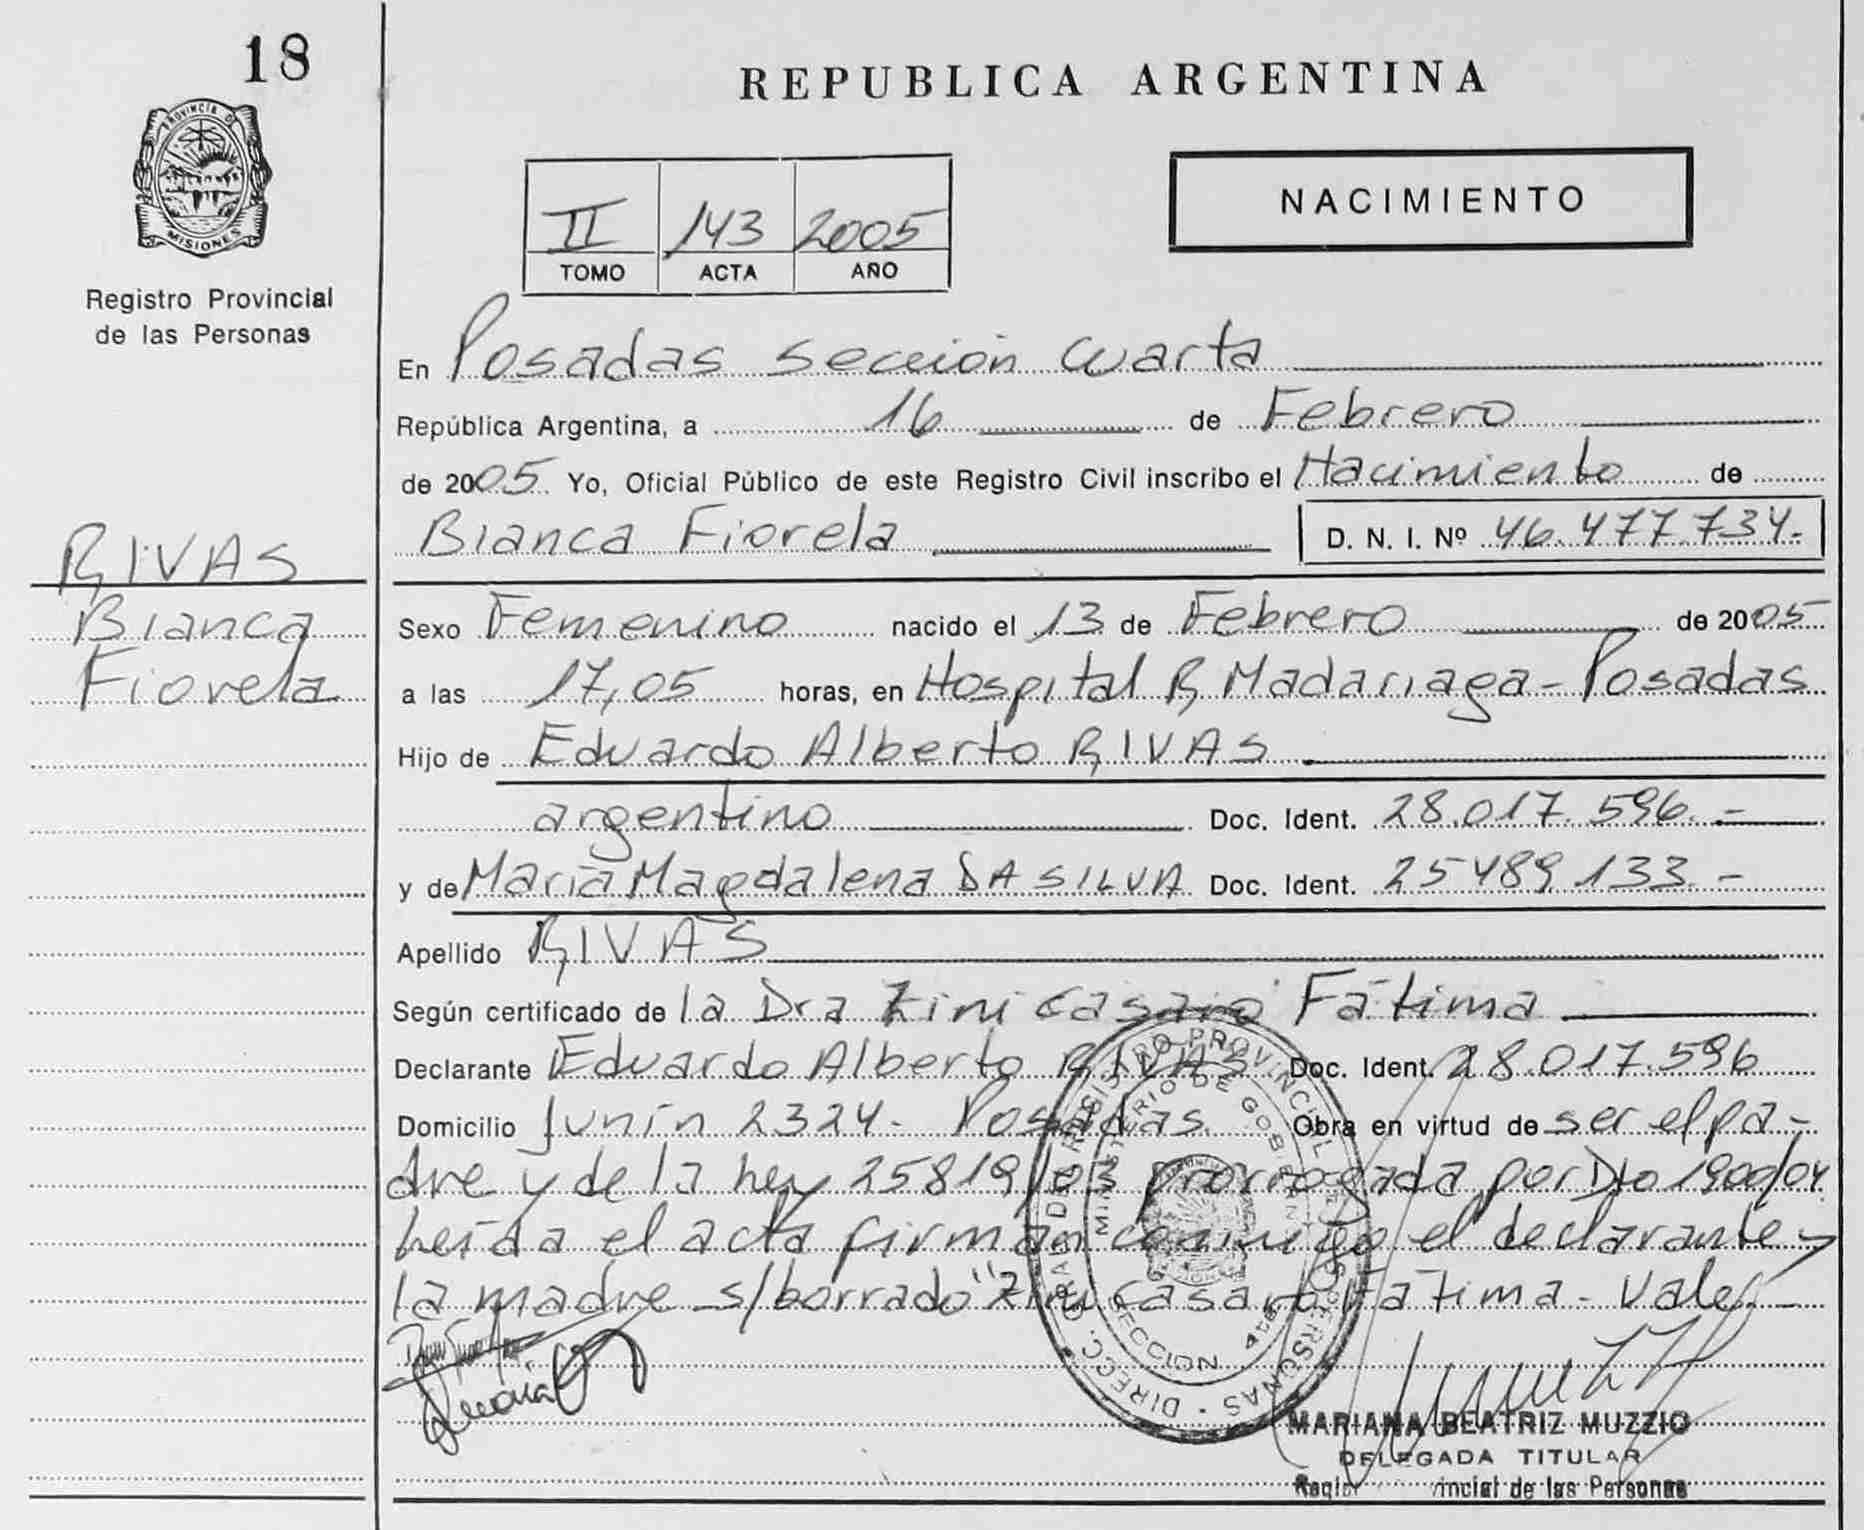 18
PROVINCIA D
MISIONES
Registro Provincial
de las Personas
REPUBLICA ARGENTINA
II 143 2005
TOMO ACTA AÑO
NACIMIENTO
En Posadas Sección Cuarta
República Argentina, a 16 de Febrero
de 2005 Yo, Oficial Público de este Registro Civil inscribo el Nacimiento de
Bianca Fiorela D. N. I. Nº 46.477.734.-
RIVAS
Bianca
Fiorela
Sexo Femenino nacido el 13 de Febrero de 2005
a las 17,05 horas, en Hospital R Madariaga - Posadas
Hijo de Eduardo Alberto RIVAS
argentino Doc. Ident. 28.017.596.-
y de María Magdalena DA SILVA Doc. Ident. 25489.133.-
Apellido RIVAS
Según certificado de la Dra Zini Casaro Fátima
Declarante Eduardo Alberto RIVAS Doc. Ident. 28.017.596
Domicilio Junín 2324.- Posadas. Obra en virtud de ser el pa-
dre y de la Ley 25819/03 prorrogada por Dto 1900/04
Leída el acta firman conmigo el declarante y
la madre s/borrado "Zini Casaro Fátima - Vale.-
DIRECC. GRAL. DEL REGISTRO PROVINCIAL DE LAS PERSONAS
MINISTERIO DE GOBIERNO
SECCION 4ta
MARIANA BEATRIZ MUZZIO
DELEGADA TITULAR
vincial de las Personas